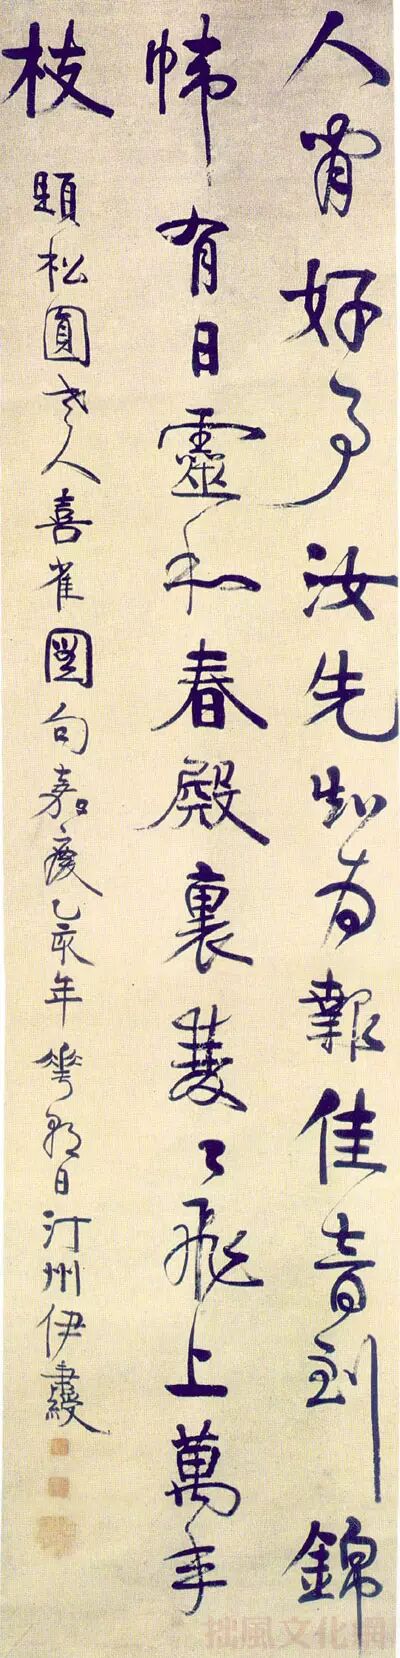 人有好事汝先知為報佳音到錦
幃有日靈和春殿裏雙〻飛上萬年
枝
題松圓老人喜雀圖句嘉慶乙亥年花朝日汀州伊秉綬
拙風文化網